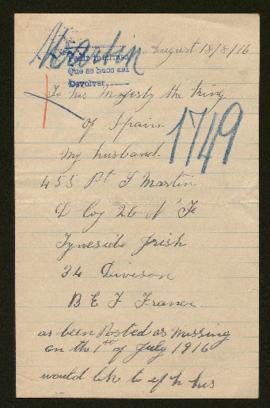 Martin
August 18/8/16
Devolver
To his Majesty the King
of Spain
1749
My husband
455 Pt J Martin
D Coy 26 N F
Tyneside Irish
34 Divison
B E F France
as been Posted as Missing
on the 1st of July 1916
would like to if his